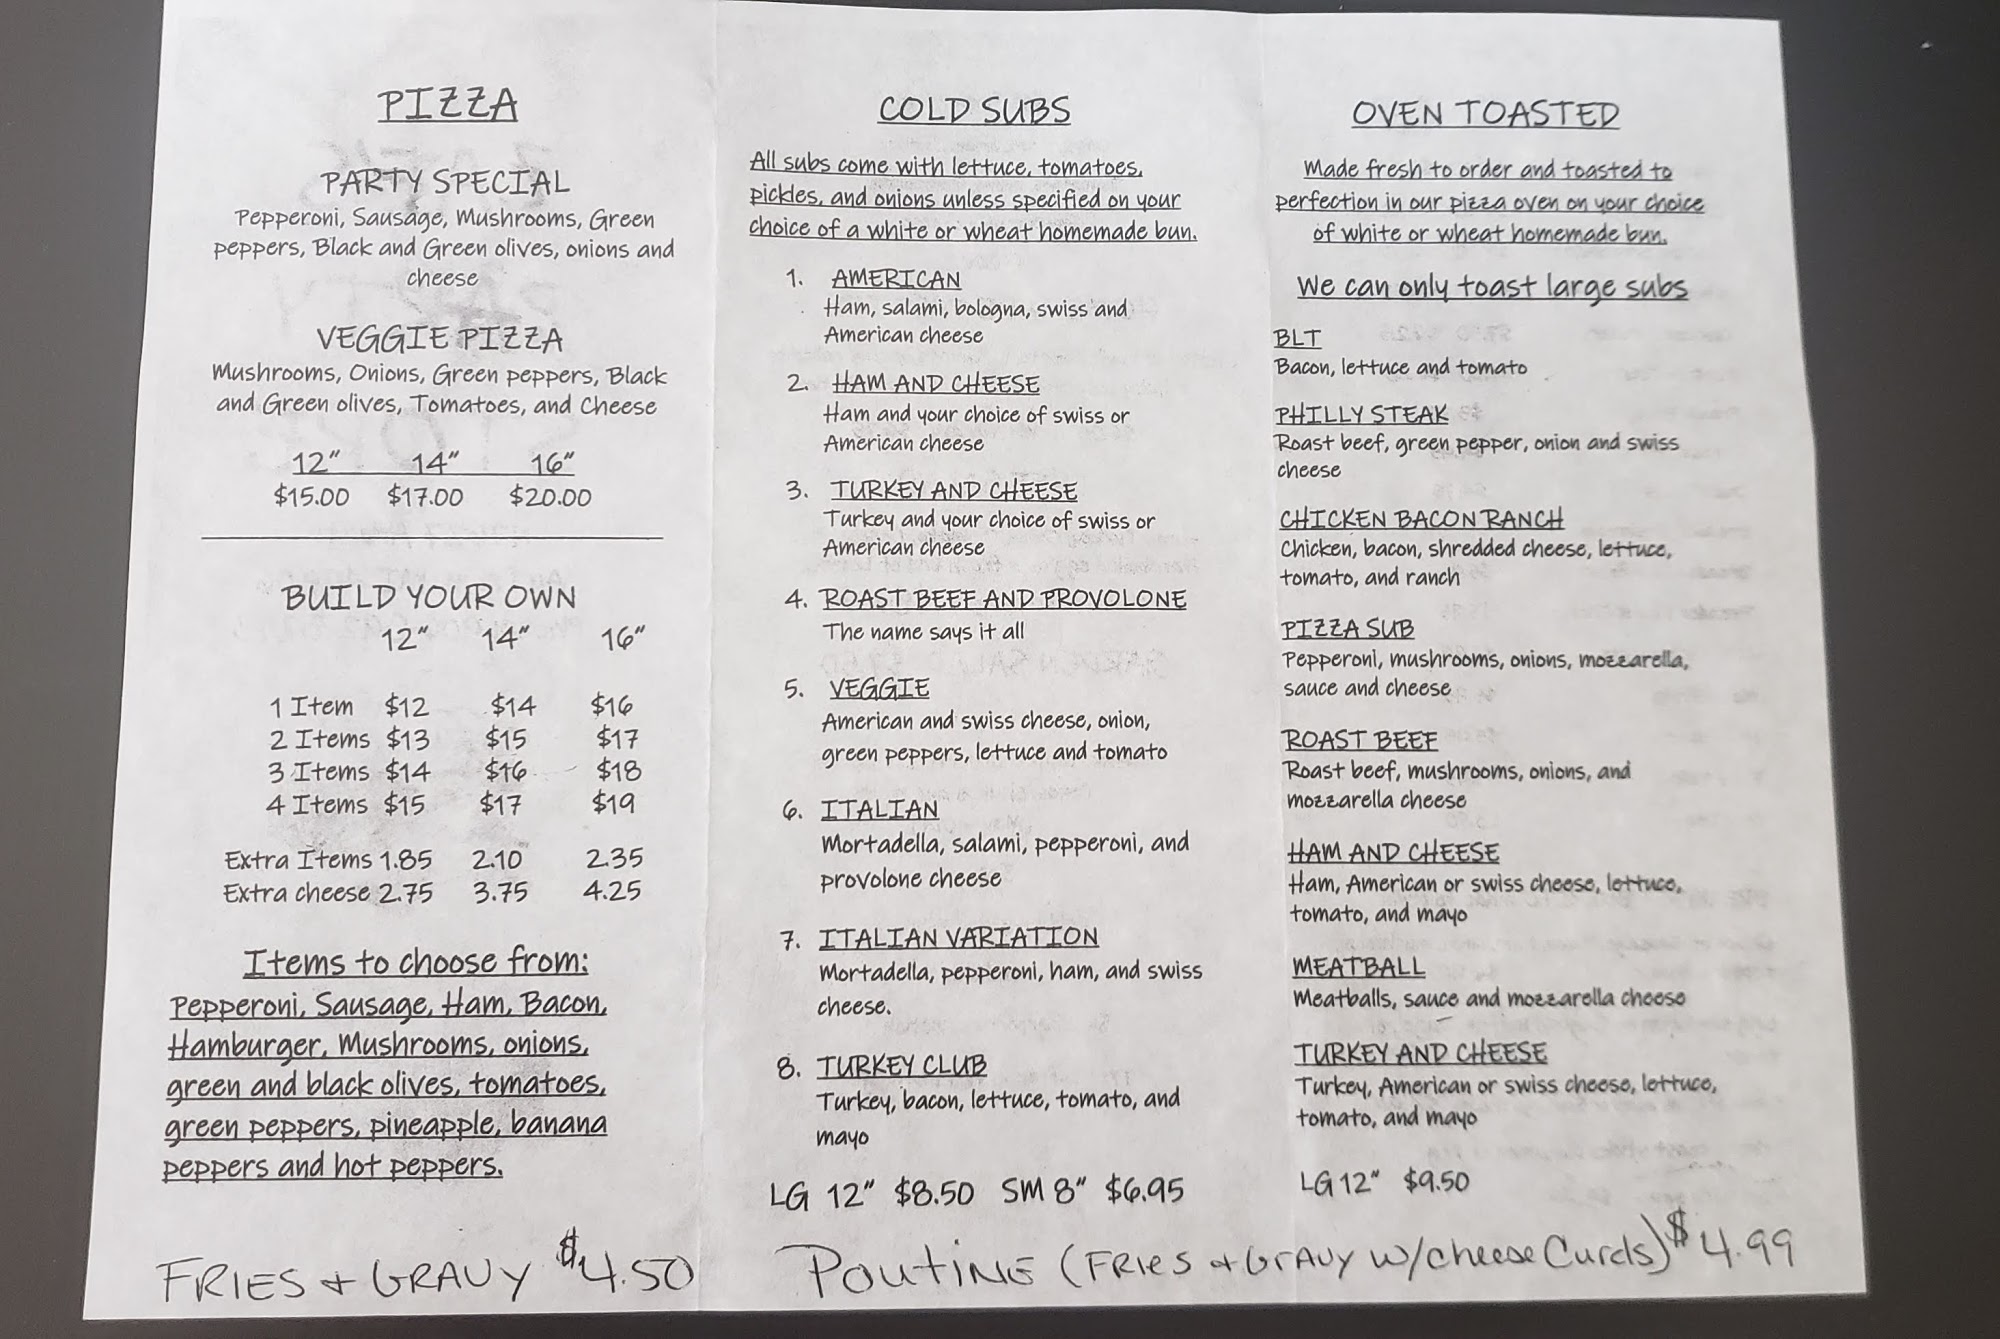 PIZZA
PARTY SPECIAL
Pepperoni, Sausage, Mushrooms, Green
peppers, Black and Green olives, onions and
cheese
VEGGIE PIZZA
Mushrooms, Onions, Green peppers, Black
and Green olives, Tomatoes, and Cheese
12" 14" 16"
$15.00 $17.00 $20.00
BUILD YOUR OWN
12" 14" 16"
1 Item $12 $14 $16
2 Items $13 $15 $17
3 Items $14 $16 $18
4 Items $15 $17 $19
Extra Items 1.85 2.10 2.35
Extra cheese 2.75 3.75 4.25
Items to choose from:
Pepperoni, Sausage, Ham, Bacon,
Hamburger, Mushrooms, onions,
green and black olives, tomatoes,
green peppers, pineapple, banana
peppers and hot peppers.
FRIES + GRAVY $4.50
COLD SUBS
All subs come with lettuce, tomatoes,
pickles, and onions unless specified on your
choice of a white or wheat homemade bun.
1. AMERICAN
Ham, salami, bologna, swiss and
American cheese
2. HAM AND CHEESE
Ham and your choice of swiss or
American cheese
3. TURKEY AND CHEESE
Turkey and your choice of swiss or
American cheese
4. ROAST BEEF AND PROVOLONE
The name says it all
5. VEGGIE
American and swiss cheese, onion,
green peppers, lettuce and tomato
6. ITALIAN
Mortadella, salami, pepperoni, and
provolone cheese
7. ITALIAN VARIATION
Mortadella, pepperoni, ham, and swiss
cheese.
8. TURKEY CLUB
Turkey, bacon, lettuce, tomato, and
mayo
LG 12" $8.50 SM 8" $6.95
OVEN TOASTED
Made fresh to order and toasted to
perfection in our pizza oven on your choice
of white or wheat homemade bun.
We can only toast large subs
BLT
Bacon, lettuce and tomato
PHILLY STEAK
Roast beef, green pepper, onion and swiss
cheese
CHICKEN BACON RANCH
Chicken, bacon, shredded cheese, lettuce,
tomato, and ranch
PIZZA SUB
Pepperoni, mushrooms, onions, mozzarella,
sauce and cheese
ROAST BEEF
Roast beef, mushrooms, onions, and
mozzarella cheese
HAM AND CHEESE
Ham, American or swiss cheese, lettuce,
tomato, and mayo
MEATBALL
Meatballs, sauce and mozzarella cheese
TURKEY AND CHEESE
Turkey, American or swiss cheese, lettuce,
tomato, and mayo
LG 12" $9.50
POUTINE (FRIES + GRAVY W/cheese Curds) $4.99